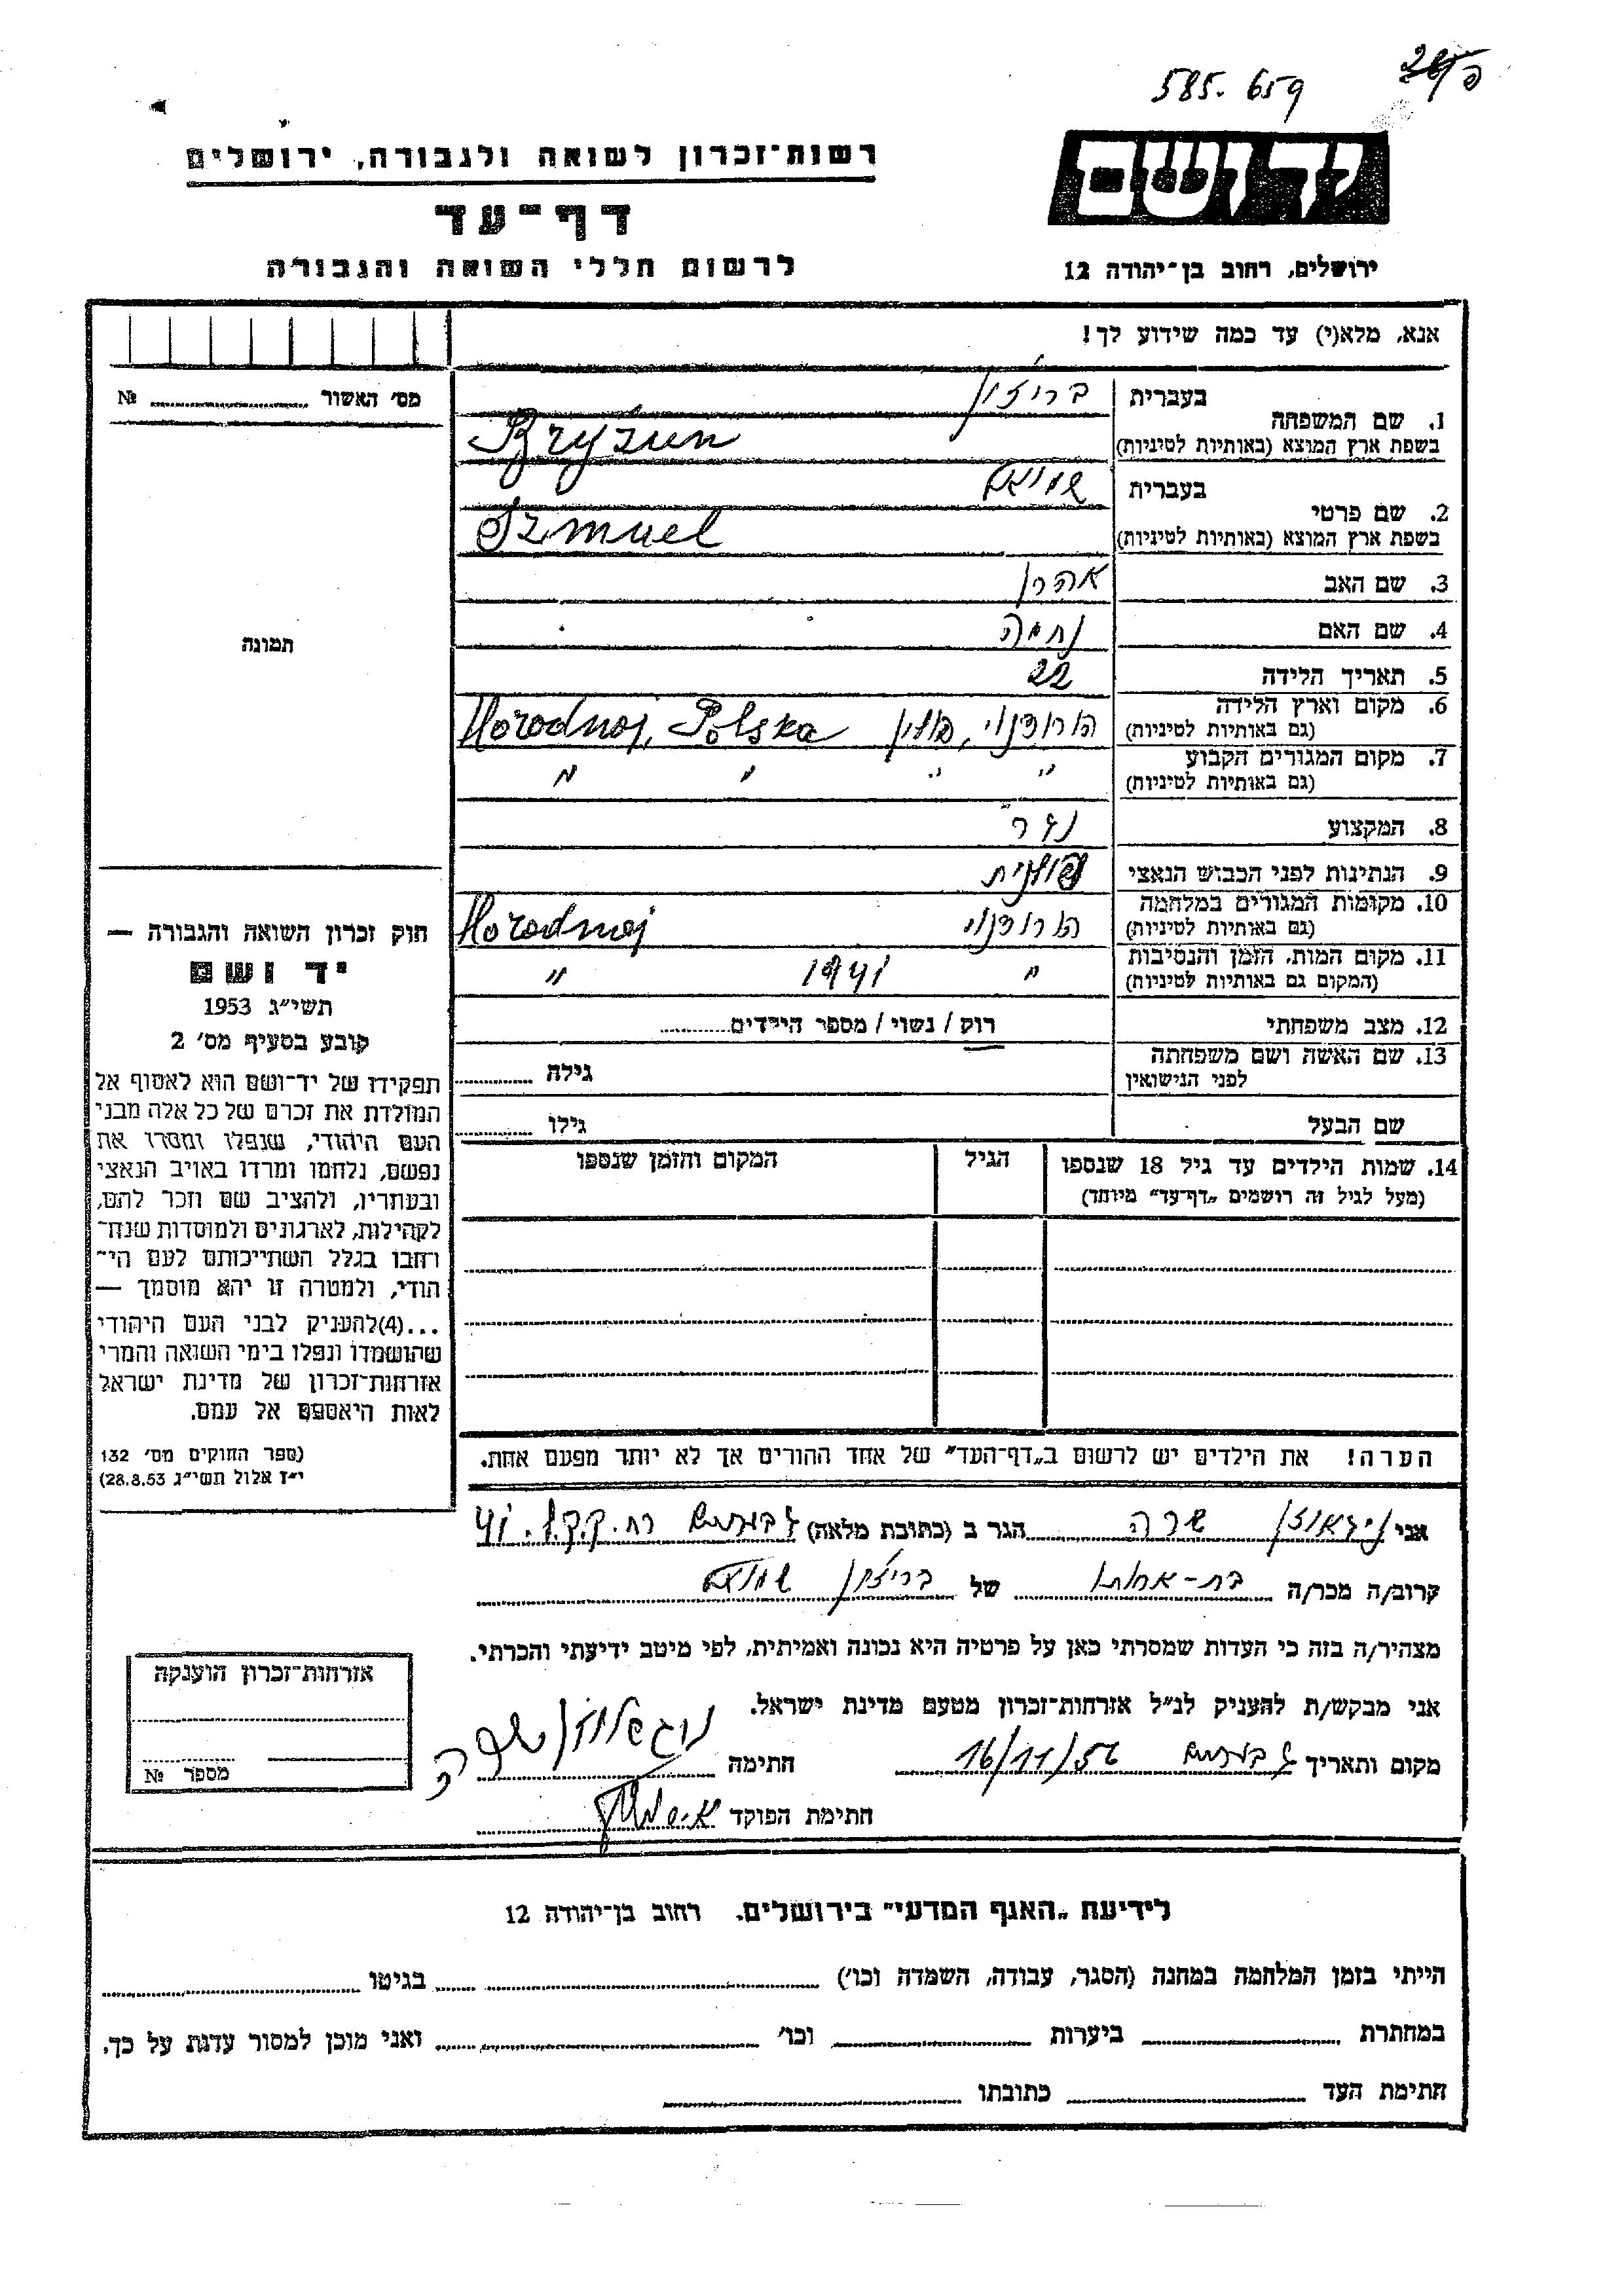 585.659
יד ושם
רשות־זכרון לשואה ולגבורה, ירושלים
דף־עד
ירושלים, רחוב בן־יהודה 12
לרשום חללי השואה והגבורה
אנא, מלא(י) עד כמה שידוע לך!
מס׳ האשור № 
1. שם המשפחה
בעברית בריזון
בשפת ארץ המוצא (באותיות לטיניות) Bryzun
2. שם פרטי
בעברית שמואל
בשפת ארץ המוצא (באותיות לטיניות) Szmuel
3. שם האב אהרן
4. שם האם נחמה
תמונה
5. תאריך הלידה 22
6. מקום וארץ הלידה
(גם באותיות לטיניות) הורודנוי, פולין Horodnoj, Polska
7. מקום המגורים הקבוע
(גם באותיות לטיניות) " " " "
8. המקצוע נגר
9. הנתינות לפני הכבוש הנאצי פולנית
10. מקומות המגורים במלחמה
(גם באותיות לטיניות) הורודנוי Horodnoj
11. מקום המות, הזמן והנסיבות
(המקום גם באותיות לטיניות) " 1941 "
12. מצב משפחתי רוק / נשוי / מספר הילדים
13. שם האשה ושם משפחתה
לפני הנישואין גילה
שם הבעל גילו
14. שמות הילדים עד גיל 18 שנספו הגיל המקום והזמן שנספו
(מעל לגיל זה רושמים „דף־עד״ מיוחד)
חוק זכרון השואה והגבורה —
יד ושם
תשי״ג 1953
קובע בסעיף מס׳ 2
תפקידו של יד־ושם הוא לאסוף אל
המולדת את זכרם של כל אלה מבני
העם היהודי, שנפלו ומסרו את
נפשם, נלחמו ומרדו באויב הנאצי
ובעוזריו, ולהציב שם וזכר להם,
לקהילות, לארגונים ולמוסדות שנח־
רחבו בגלל השתייכותם לעם הי־
הודי, ולמטרה זו יהא מוסמך —
...(4)להעניק לבני העם היהודי
שהושמדו ונפלו בימי השואה והמרי
אזרחות־זכרון של מדינת ישראל
לאות היאספם אל עמם.
(ספר החוקים מס׳ 132
י״ז אלול תשי״ג 28.8.53)
הערה! את הילדים יש לרשום ב„דף־העד״ של אחד ההורים אך לא יותר מפעם אחת.
אני שרה הגר ב (כתובת מלאה) גבעתיים רח. ק.ק.ל. 41
קרוב/ה מכר/ה בת-אחותו של בריזון שמואל
מצהיר/ה בזה כי העדות שמסרתי כאן על פרטיה היא נכונה ואמיתית, לפי מיטב ידיעתי והכרתי.
אני מבקש/ת להעניק לנ״ל אזרחות־זכרון מטעם מדינת ישראל.
מקום ותאריך גבעתיים 16/11/56 חתימה
חתימת הפוקד
אזרחות־זכרון הוענקה
מספר №
לידיעת „האגף המדעי״ בירושלים. רחוב בן־יהודה 12
הייתי בזמן המלחמה במחנה (הסגר, עבודה, השמדה וכו׳) בגיטו
במחתרת ביערות וכו׳ ואני מוכן למסור עדות על כך.
חתימת העד כתובתו